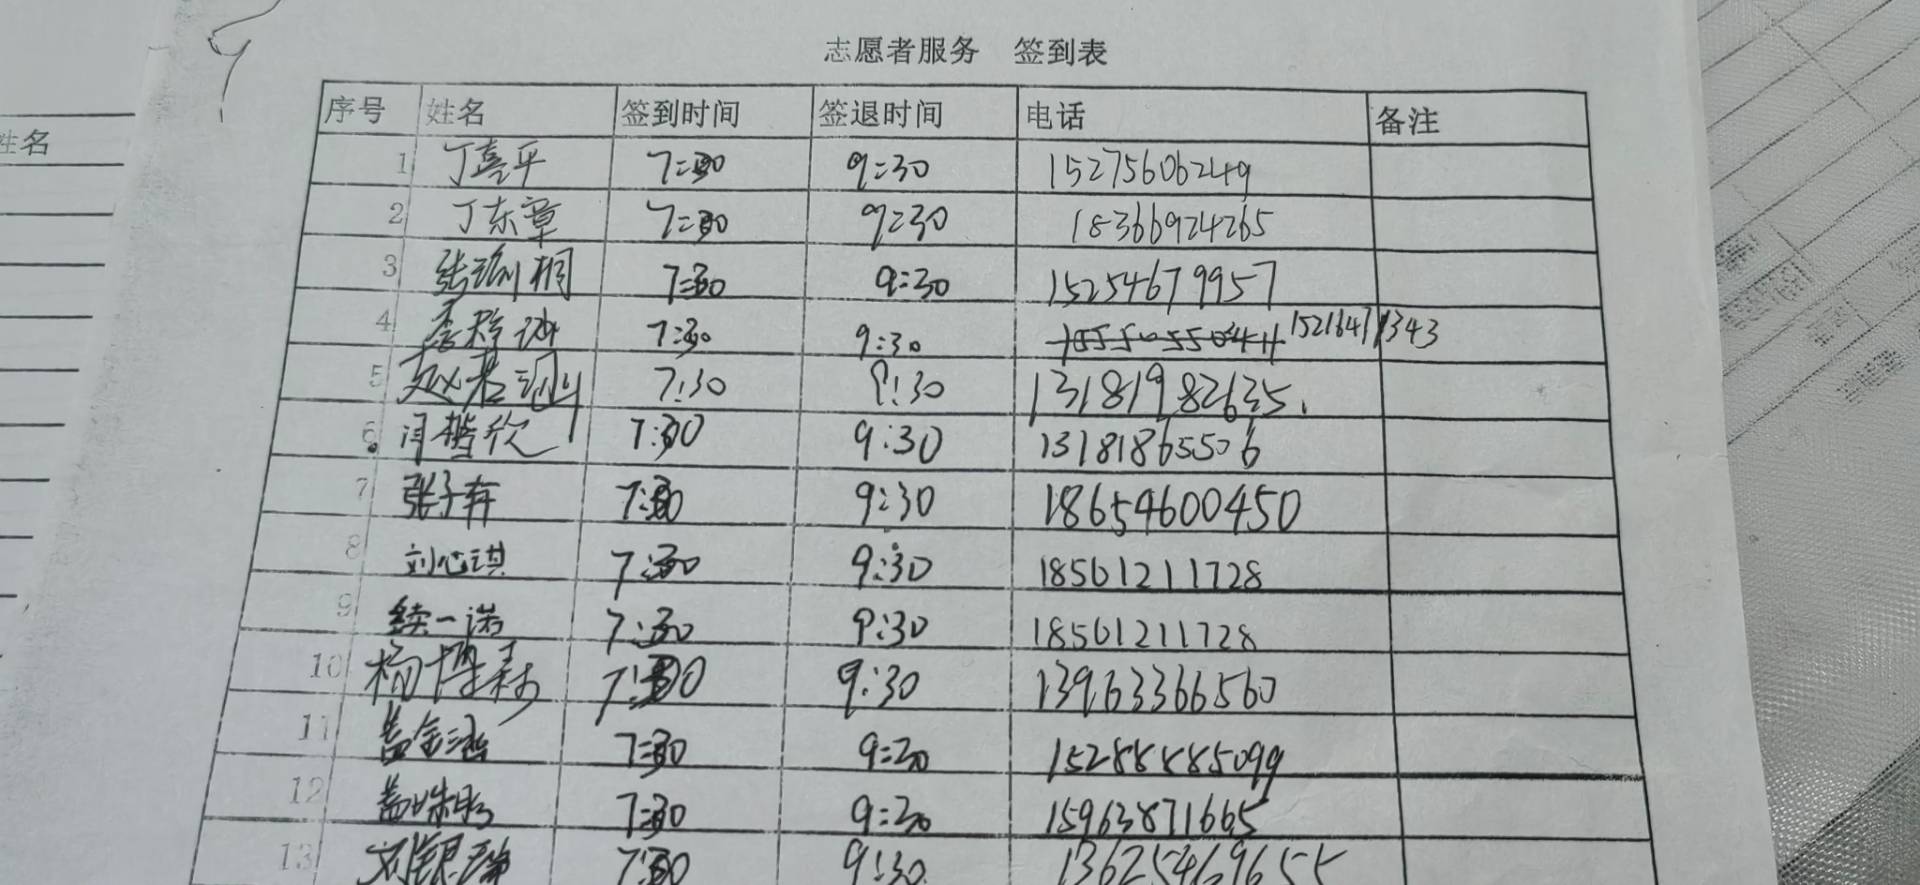 志愿者服务 签到表
序号 姓名 签到时间 签退时间 电话 备注
姓名
1 丁喜平 7:30 9:30 15275606249
2 丁东章 7:30 9:30 18366924265
3 张瑜桐 7:30 9:30 15254679957
4 7:30 9:30 15216471343
5 赵若涵 7:30 9:30 13181982635.
6 闫楷欣 7:30 9:30 13181865506
7 张子卉 7:30 9:30 18654600450
8 刘心琪 7:30 9:30 18561211728
9 续一诺 7:30 9:30 18561211728
10 杨博森 7:30 9:30 13963366560
11 盖金涵 7:30 9:30 15288885099
12 7:30 9:30 15963871665
13 7:30 9:30 13625469655